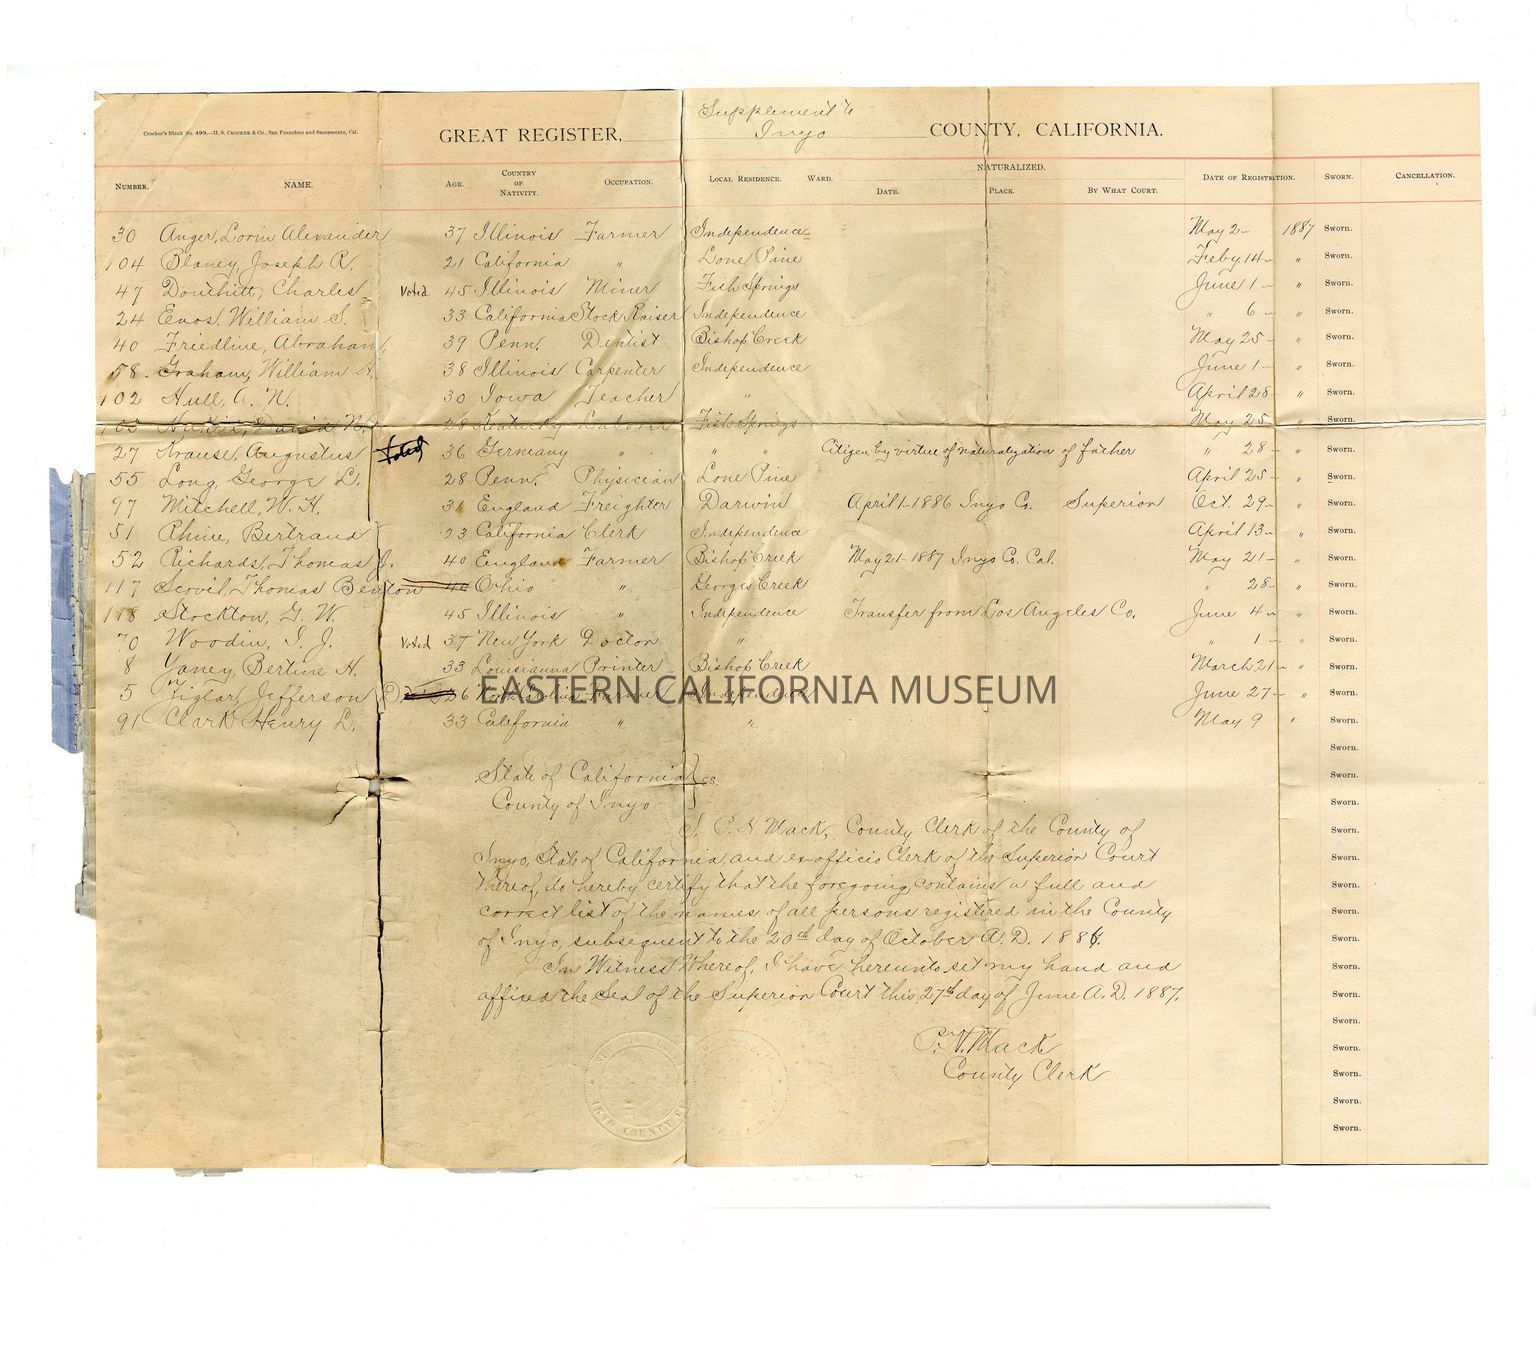 Crocker's Blank No. 499.—H. S. CROCKER & Co., San Francisco and Sacramento, Cal.
GREAT REGISTER, Supplement to Inyo COUNTY, CALIFORNIA.
NUMBER. NAME. AGE. COUNTRY OF NATIVITY. OCCUPATION. LOCAL RESIDENCE. WARD. NATURALIZED. DATE. PLACE. BY WHAT COURT. DATE OF REGISTRATION. SWORN. CANCELLATION.
30 Anger, Lorin Alexander 37 Illinois Farmer Independence May 2 – 1887 SWORN.
104 Blaney, Joseph R. 21 California " Lone Pine Feby 14 – " SWORN.
47 Douthitt, Charles Voted 45 Illinois Miner Fish Springs June 1 – " SWORN.
24 Enos, William S. 33 California Stock Raiser Independence " 6 – " SWORN.
40 Friedline, Abraham 39 Penn. Dentist Bishop Creek May 25 – " SWORN.
58 Graham, William H. 38 Illinois Carpenter Independence June 1 – " SWORN.
102 Hull, A. N. 30 Iowa Teacher " April 28 – " SWORN.
103 David N. 28 Kentucky Laborer Fish Springs May 25 – " SWORN.
27 Krause, Augustus Voted 36 Germany " " " Citizen by virtue of naturalization of father " 28 – " SWORN.
55 Long, George L. 28 Penn. Physician Lone Pine April 25 – " SWORN.
97 Mitchell, W. H. 31 England Freighter Darwin April 1 – 1886 Inyo Co. Superior Oct. 29 – " SWORN.
51 Rhine, Bertrand 23 California Clerk Independence April 13 – " SWORN.
52 Richards, Thomas J. 40 England Farmer Bishop Creek May 21 – 1887 Inyo Co. Cal. May 21 – " SWORN.
117 Scovil, Thomas Benton 40 Ohio " Georges Creek " 28 – " SWORN.
118 Stockton, G. W. 45 Illinois " Independence Transfer from Los Angeles Co. June 4 – " SWORN.
70 Woodin, I. J. Voted 37 New York Doctor " " 1 – " SWORN.
8 Yaney, Bertine H. 33 Louisianna Printer Bishop Creek March 21 – " SWORN.
5 Ziglar, Jefferson D. 26 North Carolina Farmer Independence June 27 – " SWORN.
EASTERN CALIFORNIA MUSEUM
91 Clark Henry L. 33 California " " May 9 " SWORN.
SWORN.
State of California } ss. SWORN.
County of Inyo SWORN.
I, P. H. Mack, County Clerk of the County of SWORN.
Inyo, State of California, and ex-officio Clerk of the Superior Court SWORN.
thereof, do hereby certify that the foregoing contains a full and SWORN.
correct list of the names of all persons registered in the County SWORN.
of Inyo, subsequent to the 20th day of October A. D. 1886. SWORN.
In Witness Whereof, I have hereunto set my hand and SWORN.
affixed the Seal of the Superior Court this 27th day of June A. D. 1887. SWORN.
SWORN.
P. H. Mack SWORN.
County Clerk SWORN.
SWORN.
INYO COUNTY, SWORN.